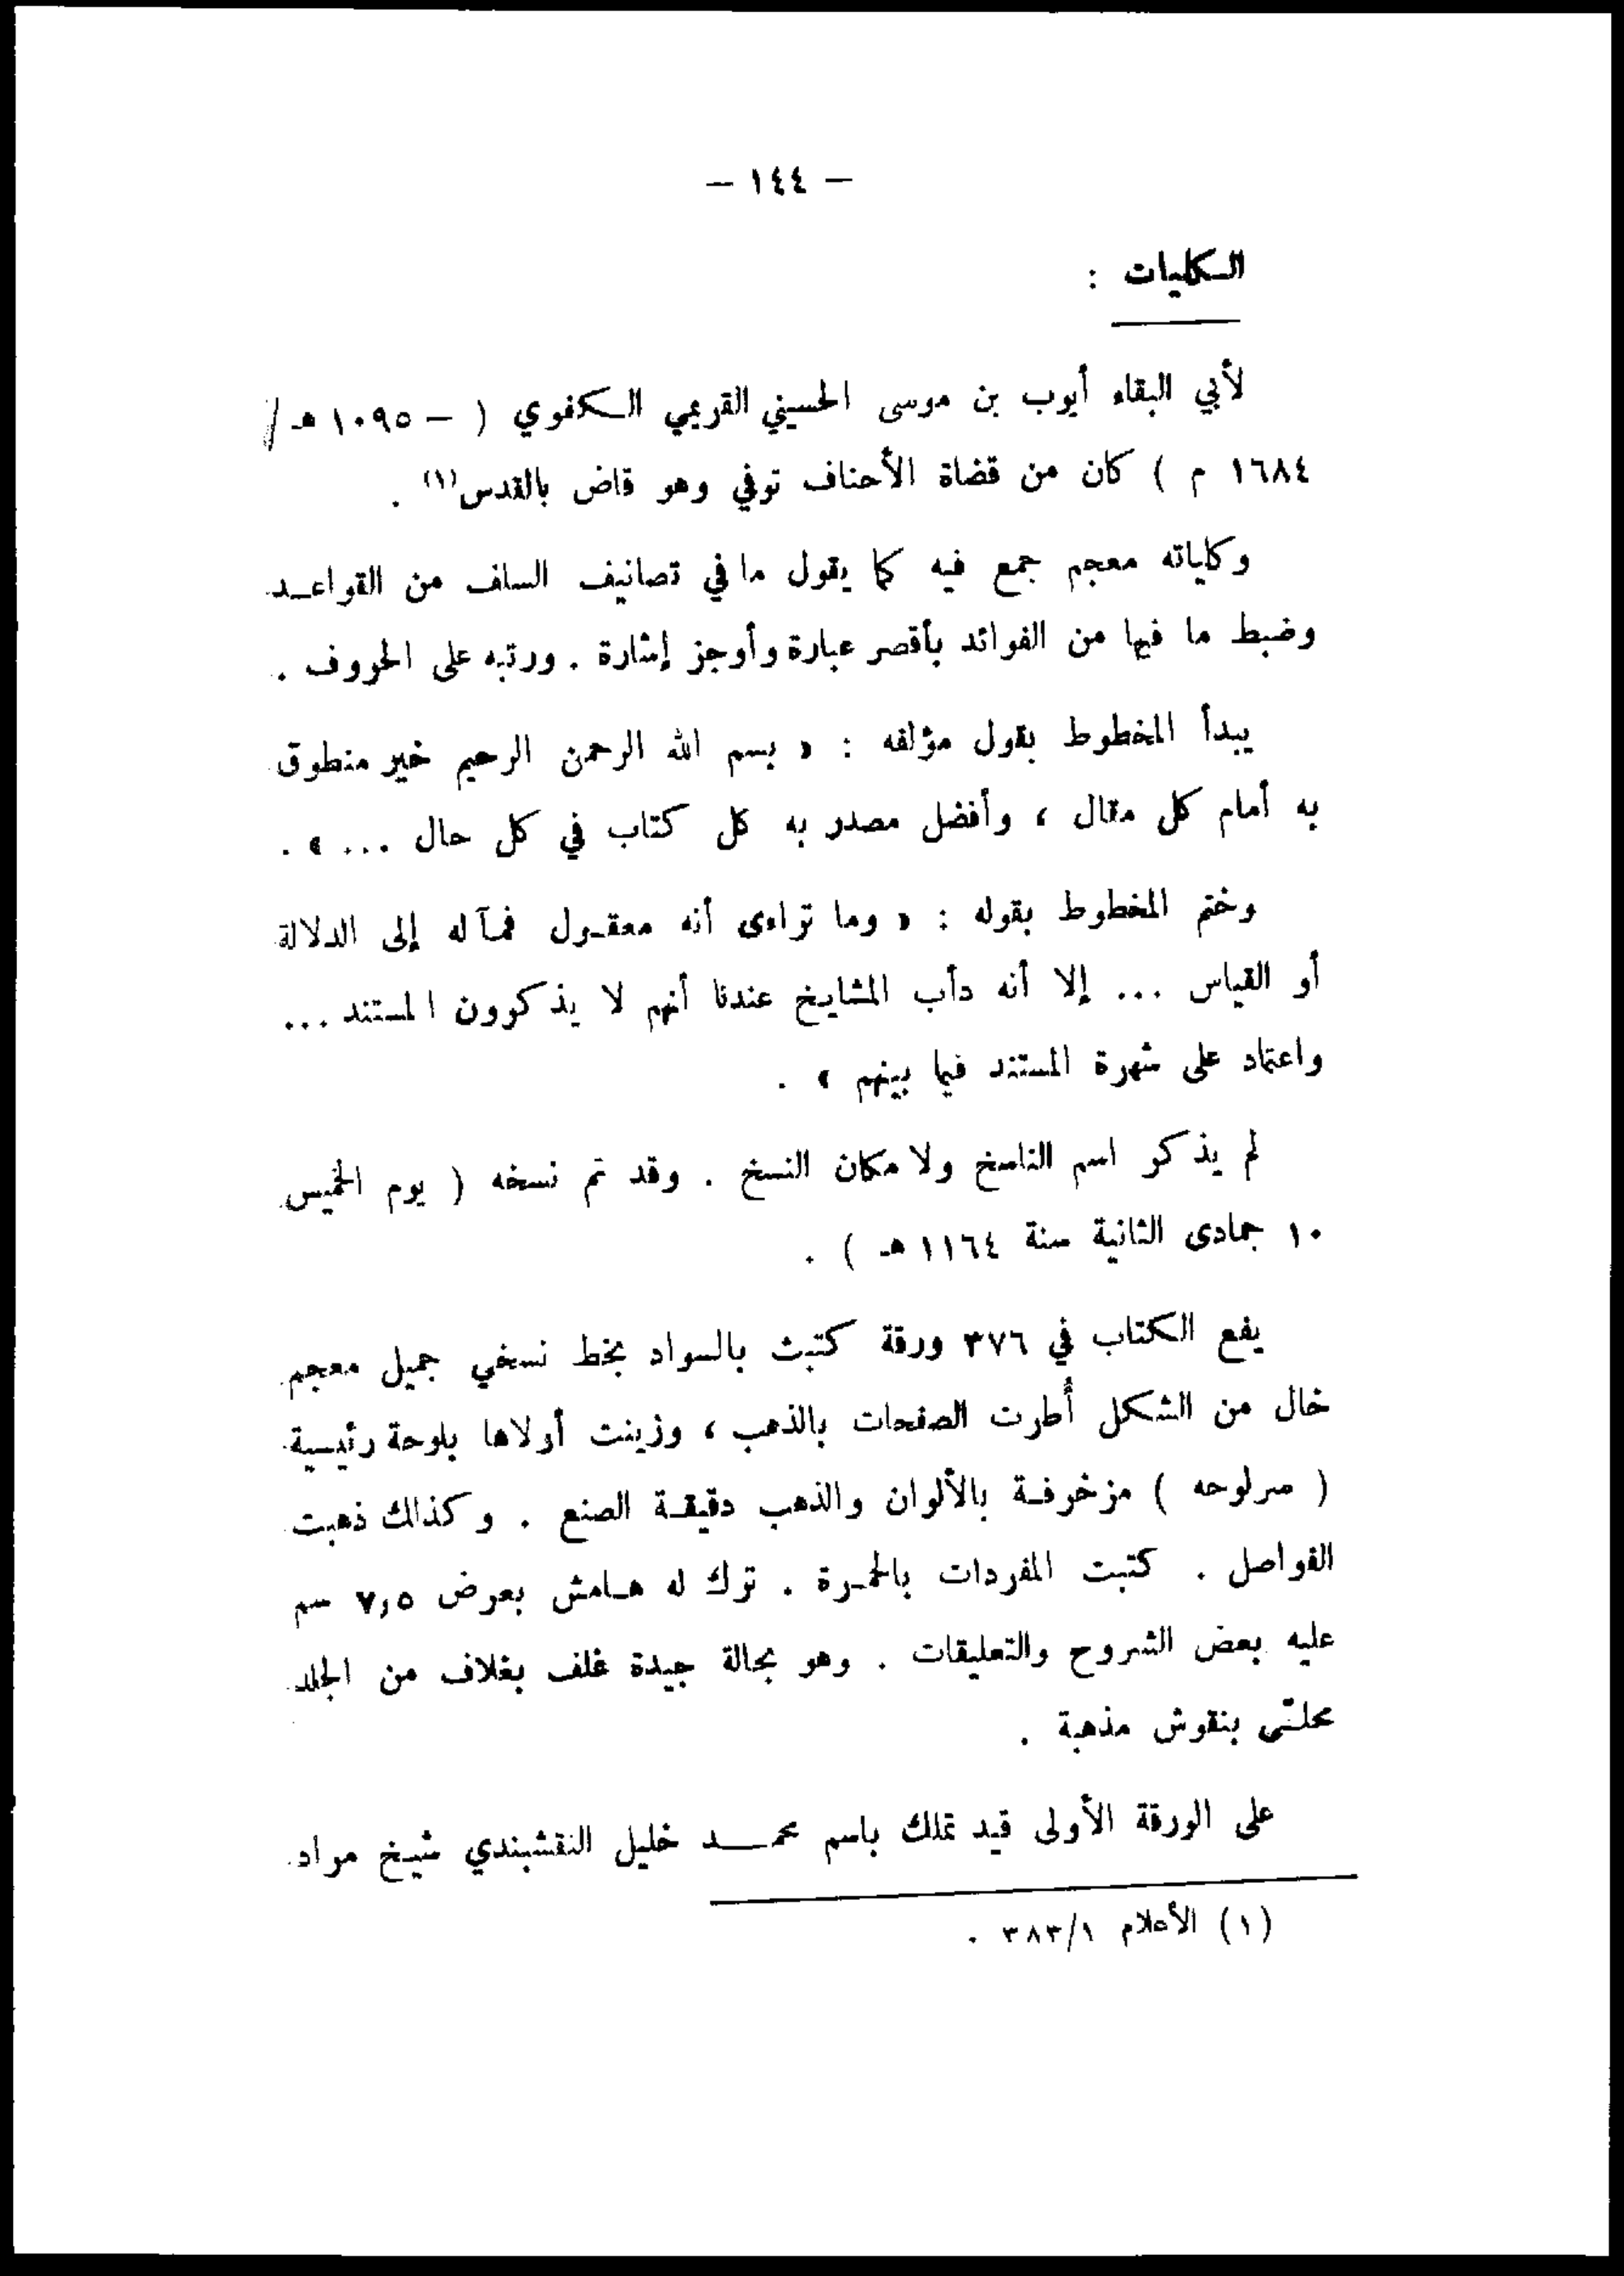 — ١٤٤ —
الكليات :
لأبي البقاء أيوب بن موسى الحسيني القريمي الكفوي ( — ١٠٩٥ هـ /
١٦٨٤ م ) كان من قضاة الأحناف توفي وهو قاض بالقدس(١) .
وكلياته معجم جمع فيه كما يقول ما في تصانيف السلف من القواعد
وضبط ما فيها من الفوائد بأقصر عبارة وأوجز إشارة . ورتبه على الحروف .
يبدأ المخطوط بقول مؤلفه : « بسم الله الرحمن الرحيم خير منطوق
به أمام كل مقال ، وأفضل مصدر به كل كتاب في كل حال ... » .
وختم المخطوط بقوله : « وما تراءى أنه معقول فمآله إلى الدلالة
أو القياس ... إلا أنه دأب المشايخ عندنا أنهم لا يذكرون المستند ...
واعتماد على شهرة المستند فيما بينهم » .
لم يذكر اسم الناسخ ولا مكان النسخ . وقد تم نسخه ( يوم الخميس
١٠ جمادى الثانية سنة ١١٦٤ هـ ) .
يقع الكتاب في ٣٧٦ ورقة كتبت بالسواد بخط نسخي جميل معجم
خال من الشكل أُطرت الصفحات بالذهب ، وزينت أولاها بلوحة رئيسية
( سرلوحه ) مزخرفة بالألوان والذهب دقيقة الصنع . وكذلك ذهبت
الفواصل . كتبت المفردات بالحمرة . ترك له هامش بعرض ٧,٥ سم
عليه بعض الشروح والتعليقات . وهو بحالة جيدة غلف بغلاف من الجلد
محلّى بنقوش مذهبة .
على الورقة الأولى قيد تملك باسم محمد خليل النقشبندي شيخ مراد
(١) الأعلام ٣٨٣/١ .